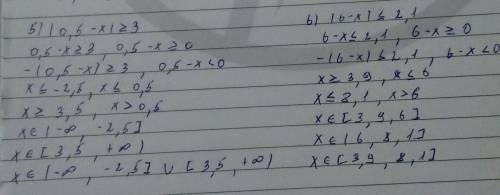 5) |0,5-x|≥3
0,5-x≥3, 0,5-x≥0
-(0,5-x)≥3, 0,5-x<0
x≤-2,5, x≤0,5
x≥3,5, x>0,5
x∈(-∞, -2,5]
x∈[3,5, +∞)
x∈(-∞, -2,5] ∪ [3,5, +∞)
6) |6-x|≤2,1
6-x≤2,1, 6-x≥0
-(6-x)≤2,1, 6-x<0
x≥3,9, x≤6
x≤8,1, x>6
x∈[3,9, 6]
x∈(6, 8,1]
x∈[3,9, 8,1]